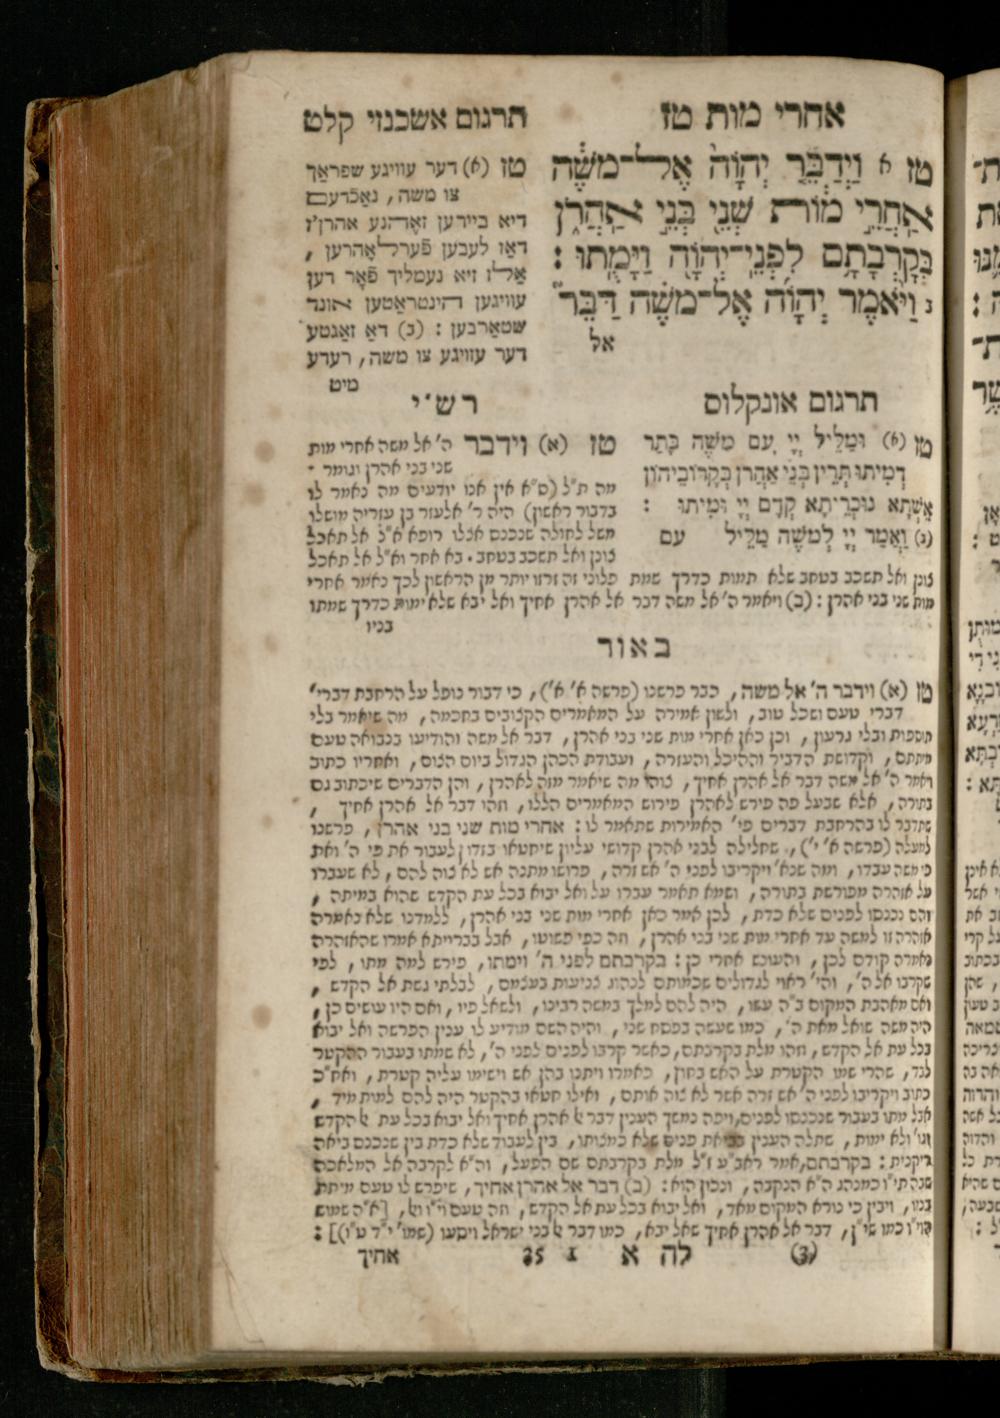 אחרי מות טז
תרגום אשכנזי קלט
טז א וַיְדַבֵּ֤ר יְהֹוָה֙ אֶל־מֹשֶׁ֔ה
אַֽחֲרֵ֣י מ֔וֹת שְׁנֵ֖י בְּנֵ֣י אַֽהֲרֹ֑ן
בְּקׇרְבָתָ֥ם לִפְנֵֽי־יְהֹוָ֖ה וַיָּמֻֽתוּ :
ב וַיֹּ֨אמֶר יְהֹוָ֜ה אֶל־מֹשֶׁ֗ה דַּבֵּר֮
אל
טז (א) דער עוויגע שפראַך
צו משה, נאַכדעם
דיא ביידען זאֶהנע אהרן'ז
דאַז לעבען פֿערלאָהרען ,
אַלז זיא נעמליך פאָר דען
עוויגען הינטראַטען אונד
שטאַרבען : (ב) דאַ זאַגטע
דער עוויגע צו משה, רעדע
מיט
תרגום אונקלוס
טז (א) וּמַלֵּיל יְיָ עִם משֶׁה בָּתַר
דְּמִיתוּ תְּרֵין בְּנֵי אַהֲרֹן בְּקָרוֹבֵיהוֹן
אֶשָּׁתָא נוּכְרֵיתָא קֳדָם יְיָ וּמִיתוּ :
(ב) וַאֲמַר יְיָ לְמשֶׁה מַלֵּיל עם
רש"י
טז (א) וידבר ה' אל משה אחרי מות
שני בני אהרן וגומר .
מה ת"ל (ס"א אין אנו יודעים מה נאמר לו
בדבור ראשון) היה ר' אלעזר בן עזריה מושלו
משל לחולה שנכנס אצלו רופא א"ל אל תאכל
צונן ואל תשכב בטחב . בא אחר וא"ל אל תאכל
צונן ואל תשכב בטחב שלא תמות כדרך שמת פלוני זה זרזו יותר מן הראשון לכך נאמר אחרי
מות שני בני אהרן : (ב) ויאמר ה' אל משה דבר אל אהרן אחיך ואל יבא שלא ימות כדרך שמתו
בניו
באור
טז (א) וידבר ה' אל משה, כבר פרשנו (פרשה א' א'), כי דבור נופל על הרחבת דברי'
דברי טעם ושכל טוב, ולשון אמירה על המאמרים הקצובים בחכמה, מה שיאמר בלי
תוספות ובלי גרעון, וכן כאן אחרי מות שני בני אהרן, דבר אל משה והודיעו בנבואה טעם
מיתתם, וקדושת הדביר וההיכל והעזרה, ועבודת הכהן הגדול ביום הצום, ואחריו כתוב
ויאמר ה' אל משה דבר אל אהרן אחיך, צוהו מה שיאמר מזה לאהרן, והן הדברים שיכתוב גם
בתורה, אלא שבעל פה פירש לאהרן פירוש המאמרים הללו, וזהו דבר אל אהרן אחיך ,
שתדבר לו בהרחבת דברים פי' האמירות שתאמר לו : אחרי מות שני בני אהרן, פרשנו
למעלה (פרשה א' י'), שחלילה לבני אהרן קדושי עליון שיחטאו בזדון לעבור את פי ה' ואת
פי משה עבדו, ומה שנא' ויקריבו לפני ה' אש זרה, פרושו מתנה אש לא צוה להם, לא שעברו
על אזהרה מפורשת בתורה, ושמא תאמר עברו על ואל יבוא בכל עת הקדש שהוא במיתה ,
והם נכנסו לפנים שלא כדת, לכן אמר כאן אחרי מות שני בני אהרן, ללמדנו שלא נאמרה
אזהרה זו למשה עד אחרי מות שני בני אהרן, וזה כפי פשוטו, אבל בברייתא אמרו שהאזהרה
נאמרה קודם לכן, והעונש אחרי כן : בקרבתם לפני ה' וימתו, פירש למה מתו, לפי
שקרבו אל ה', והי' ראוי לגדולים שכמותם לנהוג צניעות בעצמם, לבלתי גשת אל הקדש ,
ואם מאהבת המקום ב"ה עשו, היה להם למלך במשה רבינו, ולשאל פיו, ואם היו עושים כן ,
היה משה שואל מאת ה', כמו שעשה בפסח שני, והיה השם מודיע לו ענין הפרשה ואל יבוא
בכל עת אל הקדש, וזהו מלת בקרבתם, כאשר קרבו לפנים לפני ה', לא שמתו בעבור ההקטר
לבד, שהרי שמו הקטרת על האש בחוץ, כאמרו ויתנו בהן אש וישימו עליה קטרת, ואח"כ
כתוב ויקריבו לפני ה' אש זרה אשר לא צוה אותם, ואילו חטאו בהקטר היה להם למות מיד ,
אבל מתו בעבור שנכנסו לפנים, ויפה נמשך הענין דבר אל אהרן אחיך ואל יבוא בכל עת אל הקדש
וגו' ולא ימות, שתלה הענין בביאת פנים שלא כמצותו, בין לעבוד שלא כדת בין שנכנס ביאה
ריקנית : בקרבתם, אמר ראב"ע ז"ל מלת בקרבתם שם הפעל, וה"א לקרבה אל המלאכה
שבה תי"ו כמנהג ה"א הנקבה, ונכון הוא : (ב) דבר אל אהרן אחיך, שיפרש לו טעם מיתת
בניו, ויבין כי נורא המקום מאד, ואל יבוא בכל עת אל הקדש, וזה טעם וי"ו ואל, [א"ה שמוש
הוי"ו כמו שי"ן, דבר אל אהרן אחיך שאל יבא, כמו דבר אל בני ישראל ויסעו (שמו' י"ד ט"ו)] :
(3) לה א 1 35 אחיך